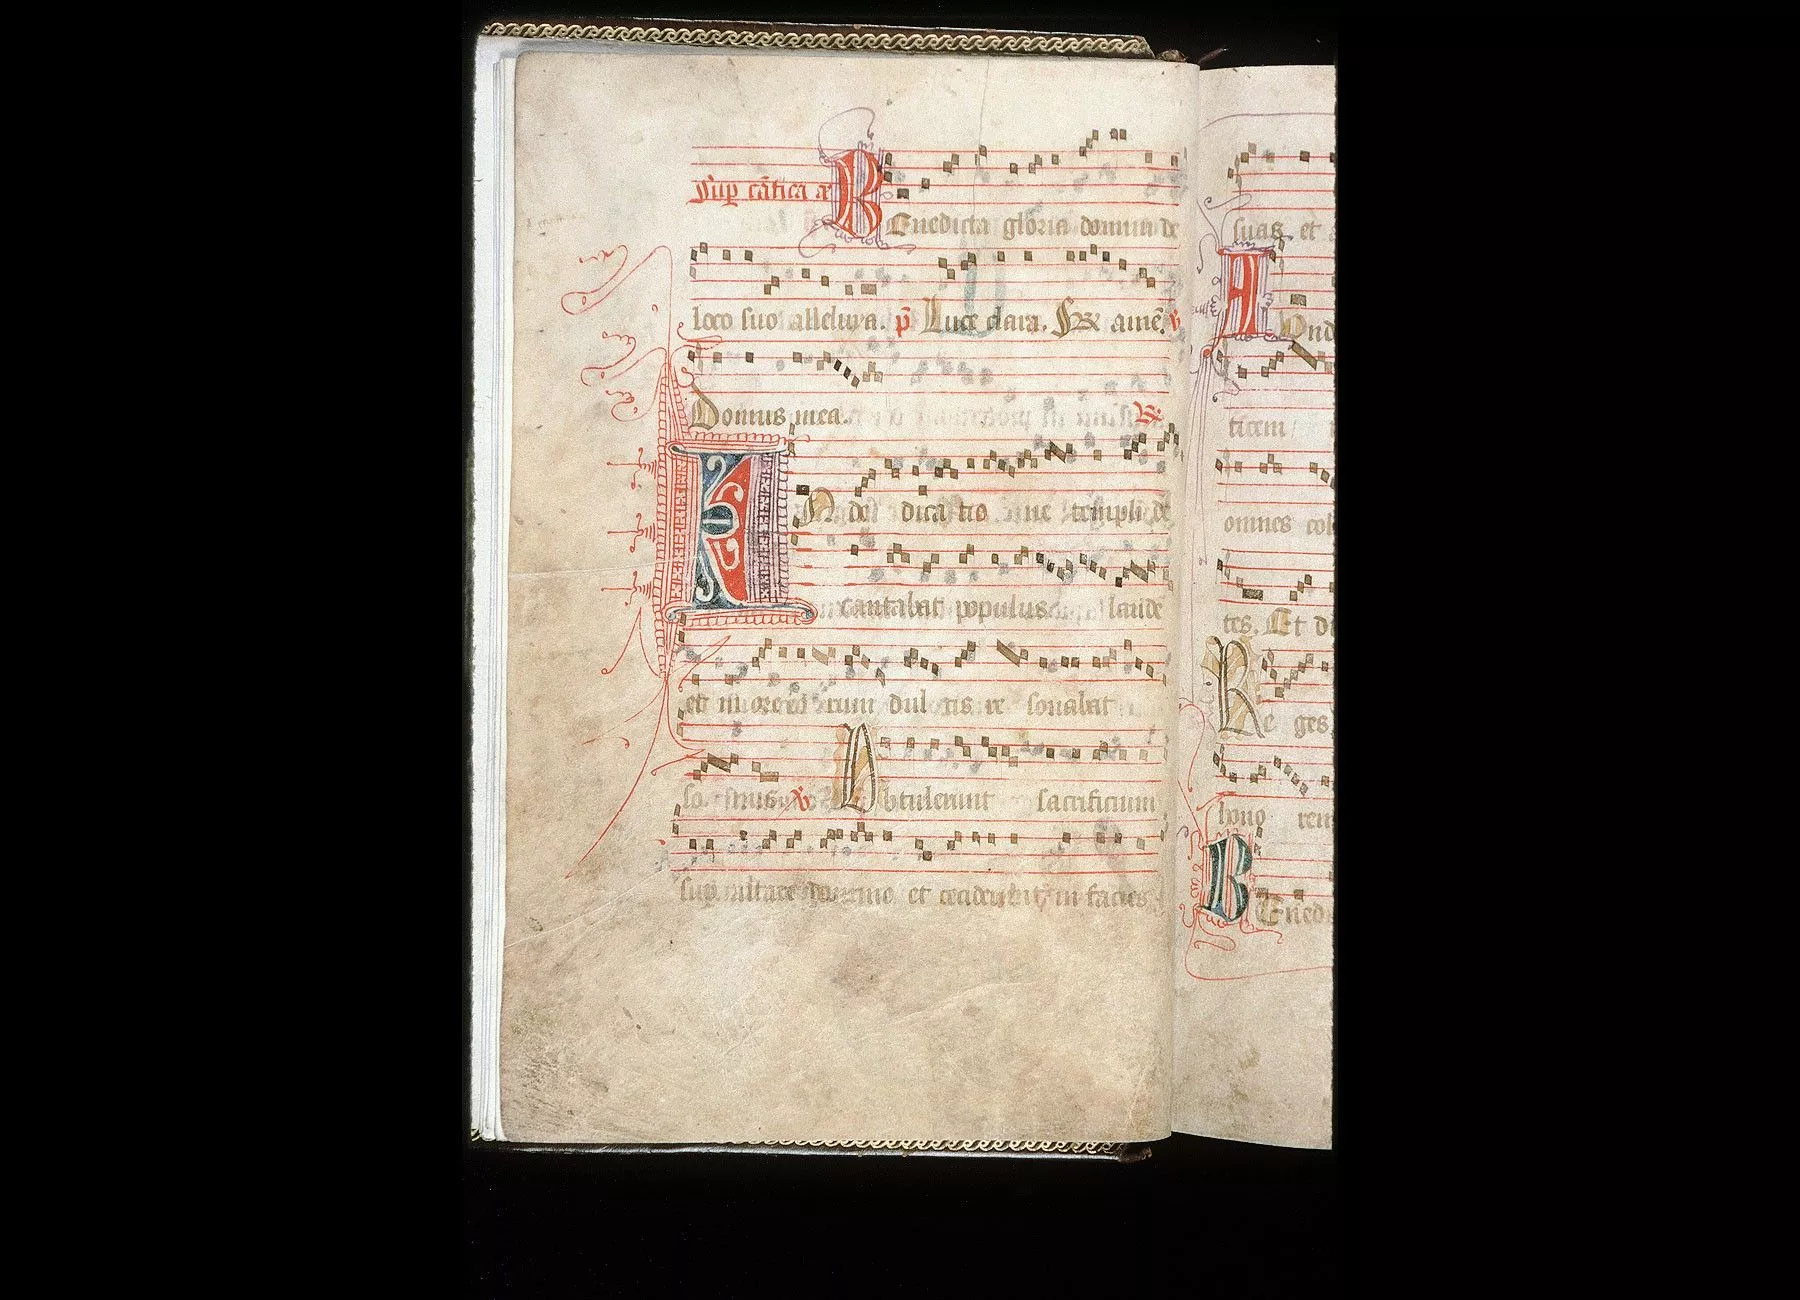 Sup cãtica añ BEnedicta gloria domini de
loco suo alleluya. p̃ Luce clara. amẽ. v
Domus mea. R
IN dedicatione templi de
cantabat populus laude
et in ore eorum dulcis re sonabat
so nus v Obtulerunt sacrificium
sup altare domino et ceciderunt in facies
suas et
AOnd
ticem
omnes col
tes. Et di
Re ges
bono rem
BEned